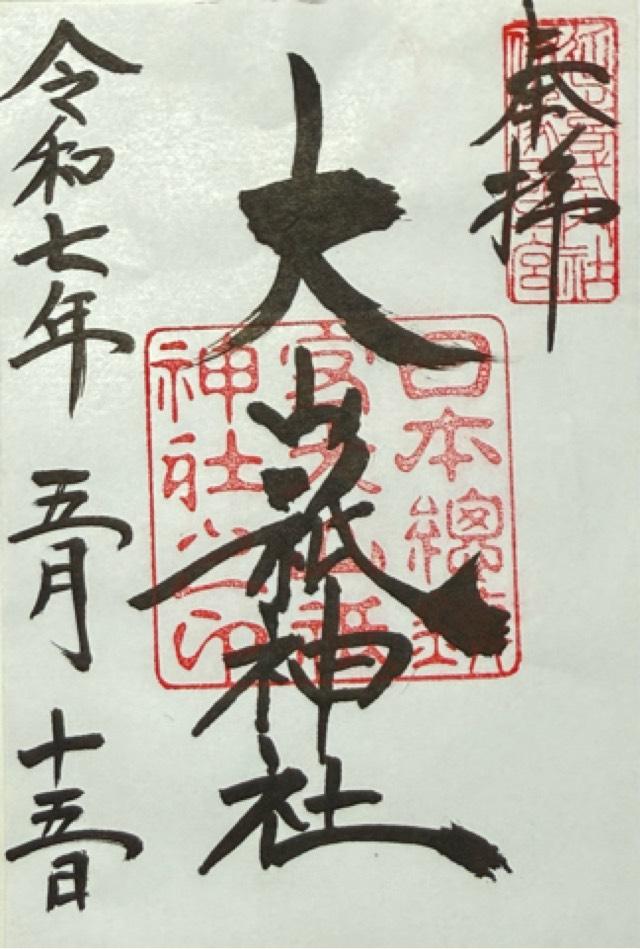 奉拝
大山祇神社
日本總鎮
宮大山祇
神社之印
令和七年 五月 十五日